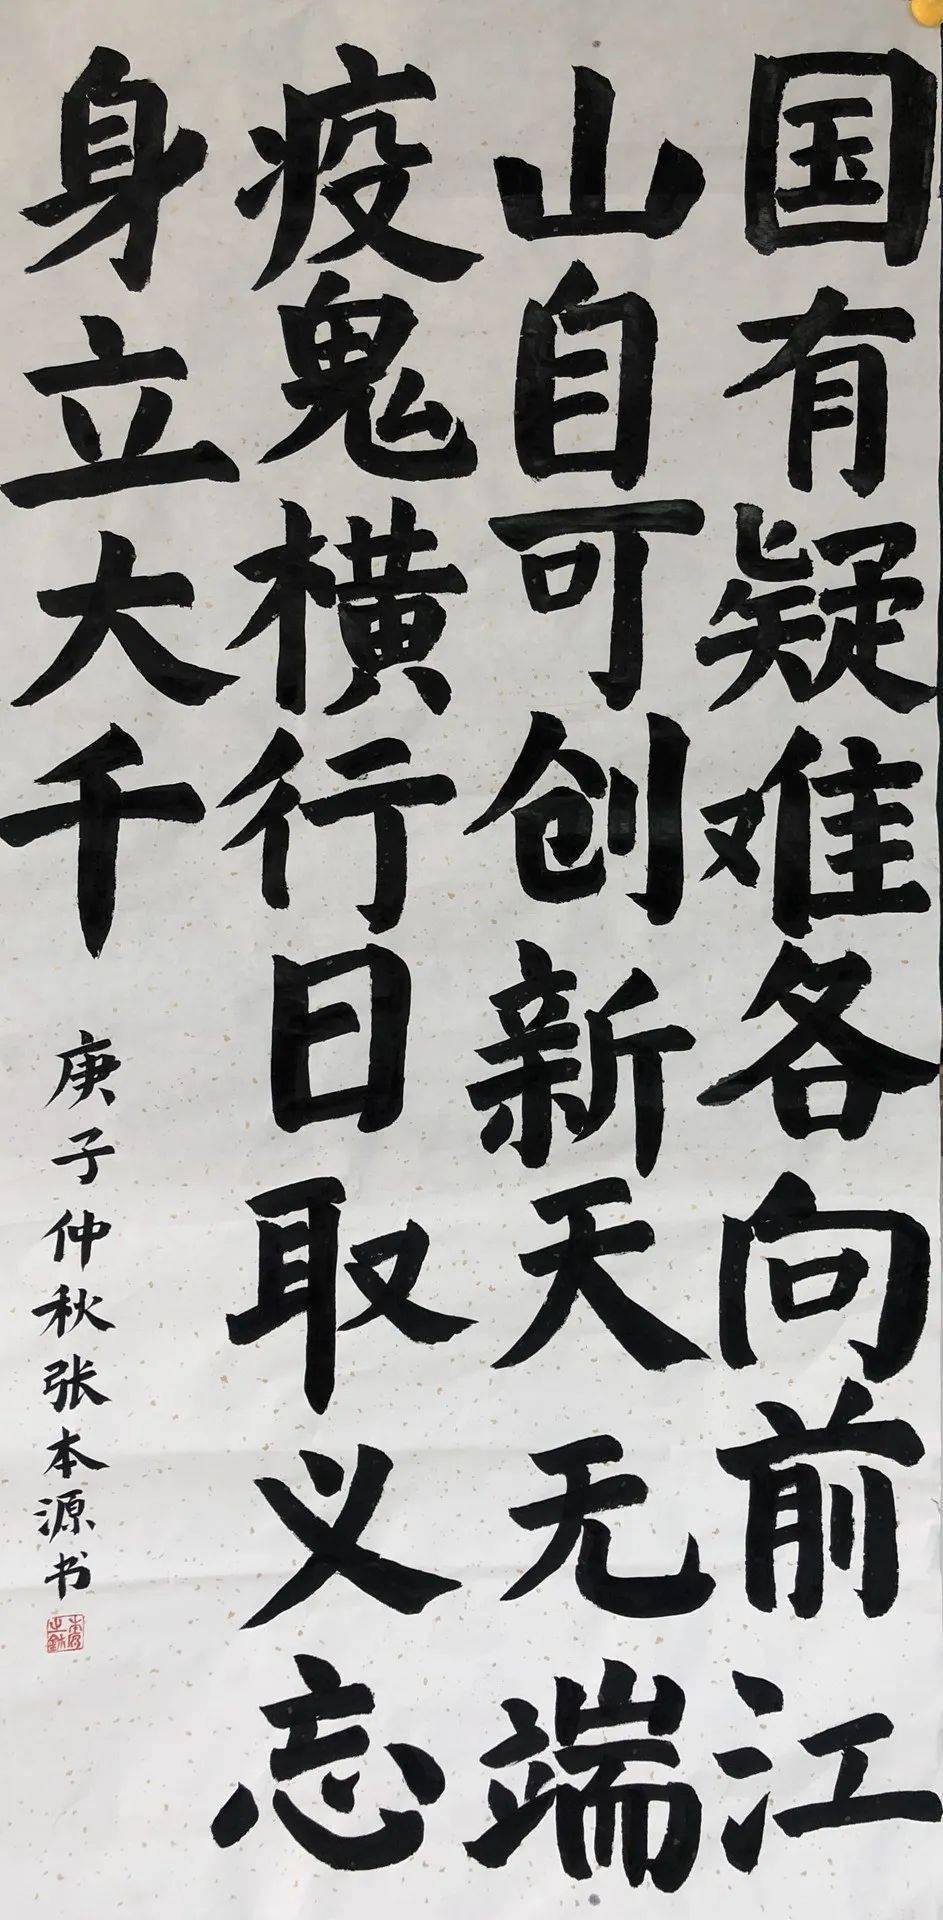 国有疑难各向前江
山自可创新天无端
疫鬼横行日取义忘
身立大千
庚子仲秋张本源书